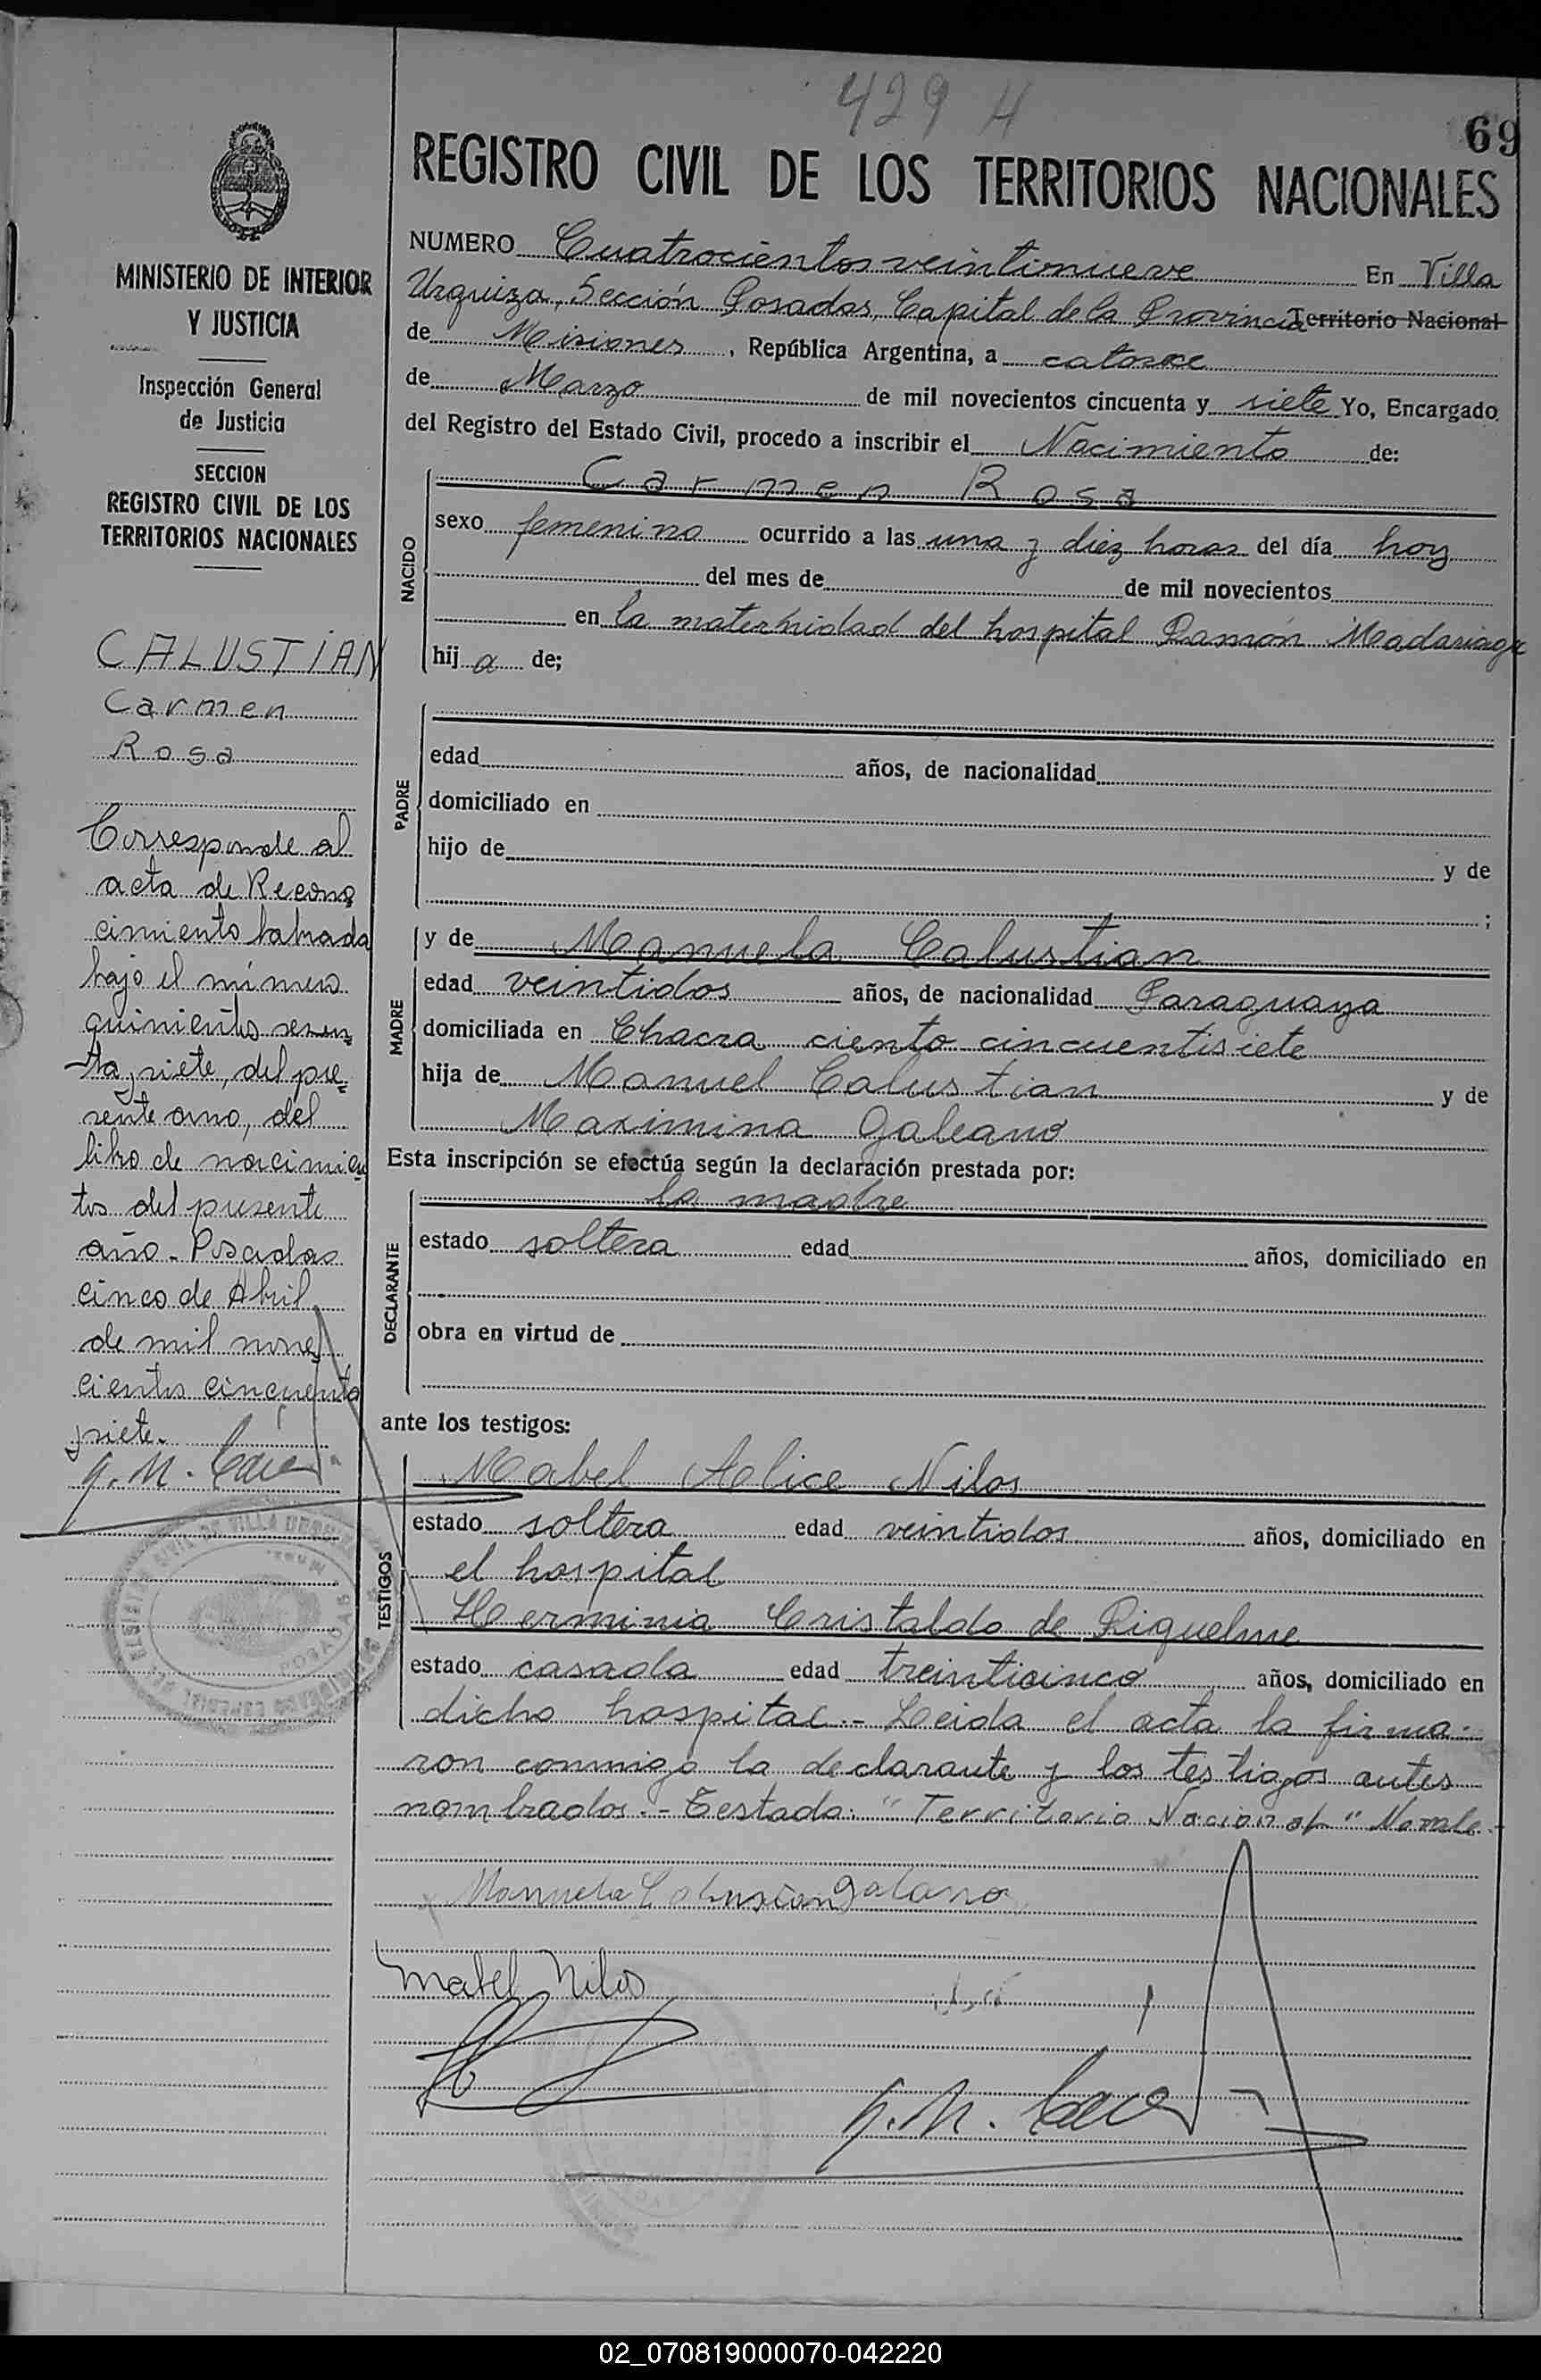 429 H
69
REGISTRO CIVIL DE LOS TERRITORIOS NACIONALES
MINISTERIO DE INTERIOR
Y JUSTICIA
Inspección General
de Justicia
SECCION
REGISTRO CIVIL DE LOS
TERRITORIOS NACIONALES
CALUSTIAN
Carmen
Rosa
Corresponde al
acta de Recono
cimiento labrada
bajo el número
quinientos sesen
ta y siete, del pre=
sente año, del
libro de nacimien
tos del presente
año - Posadas
cinco de Abril
de mil nove
cientos cincuenta
y siete.
NUMERO Cuatrocientos veintinueve En Villa
Urquiza, Sección Posadas, Capital de la Provincia Territorio Nacional
de Misiones, República Argentina, a catorce
de Marzo de mil novecientos cincuenta y siete Yo, Encargado
del Registro del Estado Civil, procedo a inscribir el Nacimiento de:
NACIDO
Carmen Rosa
sexo femenino ocurrido a las una y diez horas del día hoy
del mes de de mil novecientos
en la maternidad del hospital Ramón Madariaga
hij a de;
PADRE
edad años, de nacionalidad
domiciliado en
hijo de y de
;
MADRE
y de Manuela Calustian
edad veintidos años, de nacionalidad Paraguaya
domiciliada en Chacra ciento cincuentisiete
hija de Manuel Calustian y de
Maximina Galeano
Esta inscripción se efectúa según la declaración prestada por:
DECLARANTE
la madre
estado soltera edad años, domiciliado en
obra en virtud de
ante los testigos:
TESTIGOS
Mabel Alice Nilos
estado soltera edad veintidos años, domiciliado en
el hospital
Herminia Cristaldo de Riquelme
estado casada edad treinticinco años, domiciliado en
dicho hospital.- Leida el acta la firma-
ron conmigo la declarante y los testigos antes
nombrados.- Testado: "Territorio Nacional" No vale.-
Manuela Calustian Galano
Mabel Nilos
02_070819000070-042220